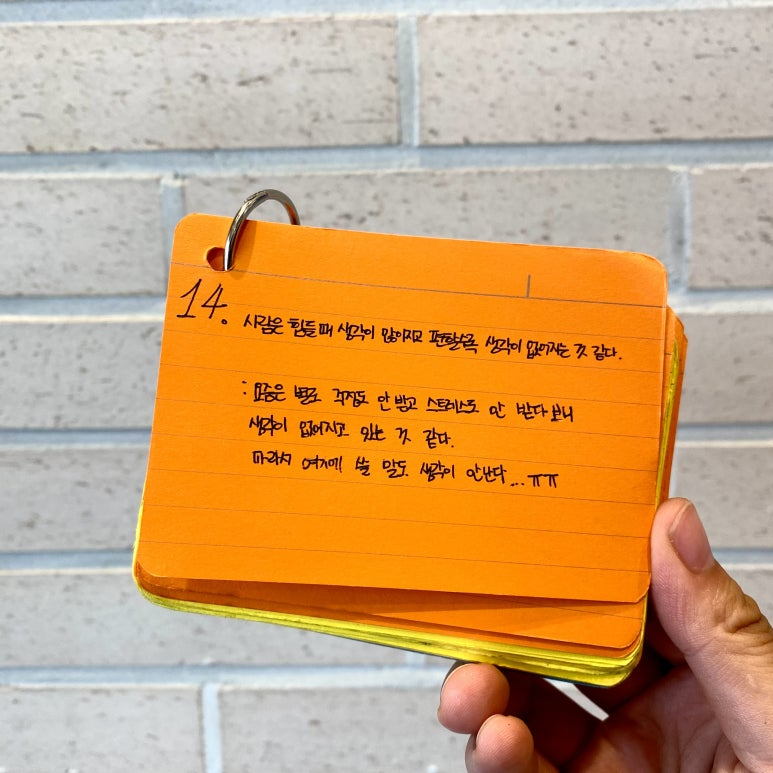 14. 사람은 힘들때 생각이 많아지고 편할수록 생각이 없어지는 것 같다.
: 요즘은 별로 걱정도 안 받고 스트레스도 안 받다 보니
생각이 없어지고 있는 것 같다.
따라서 여기에 쓸 말도 생각이 안난다... ㅠㅠ